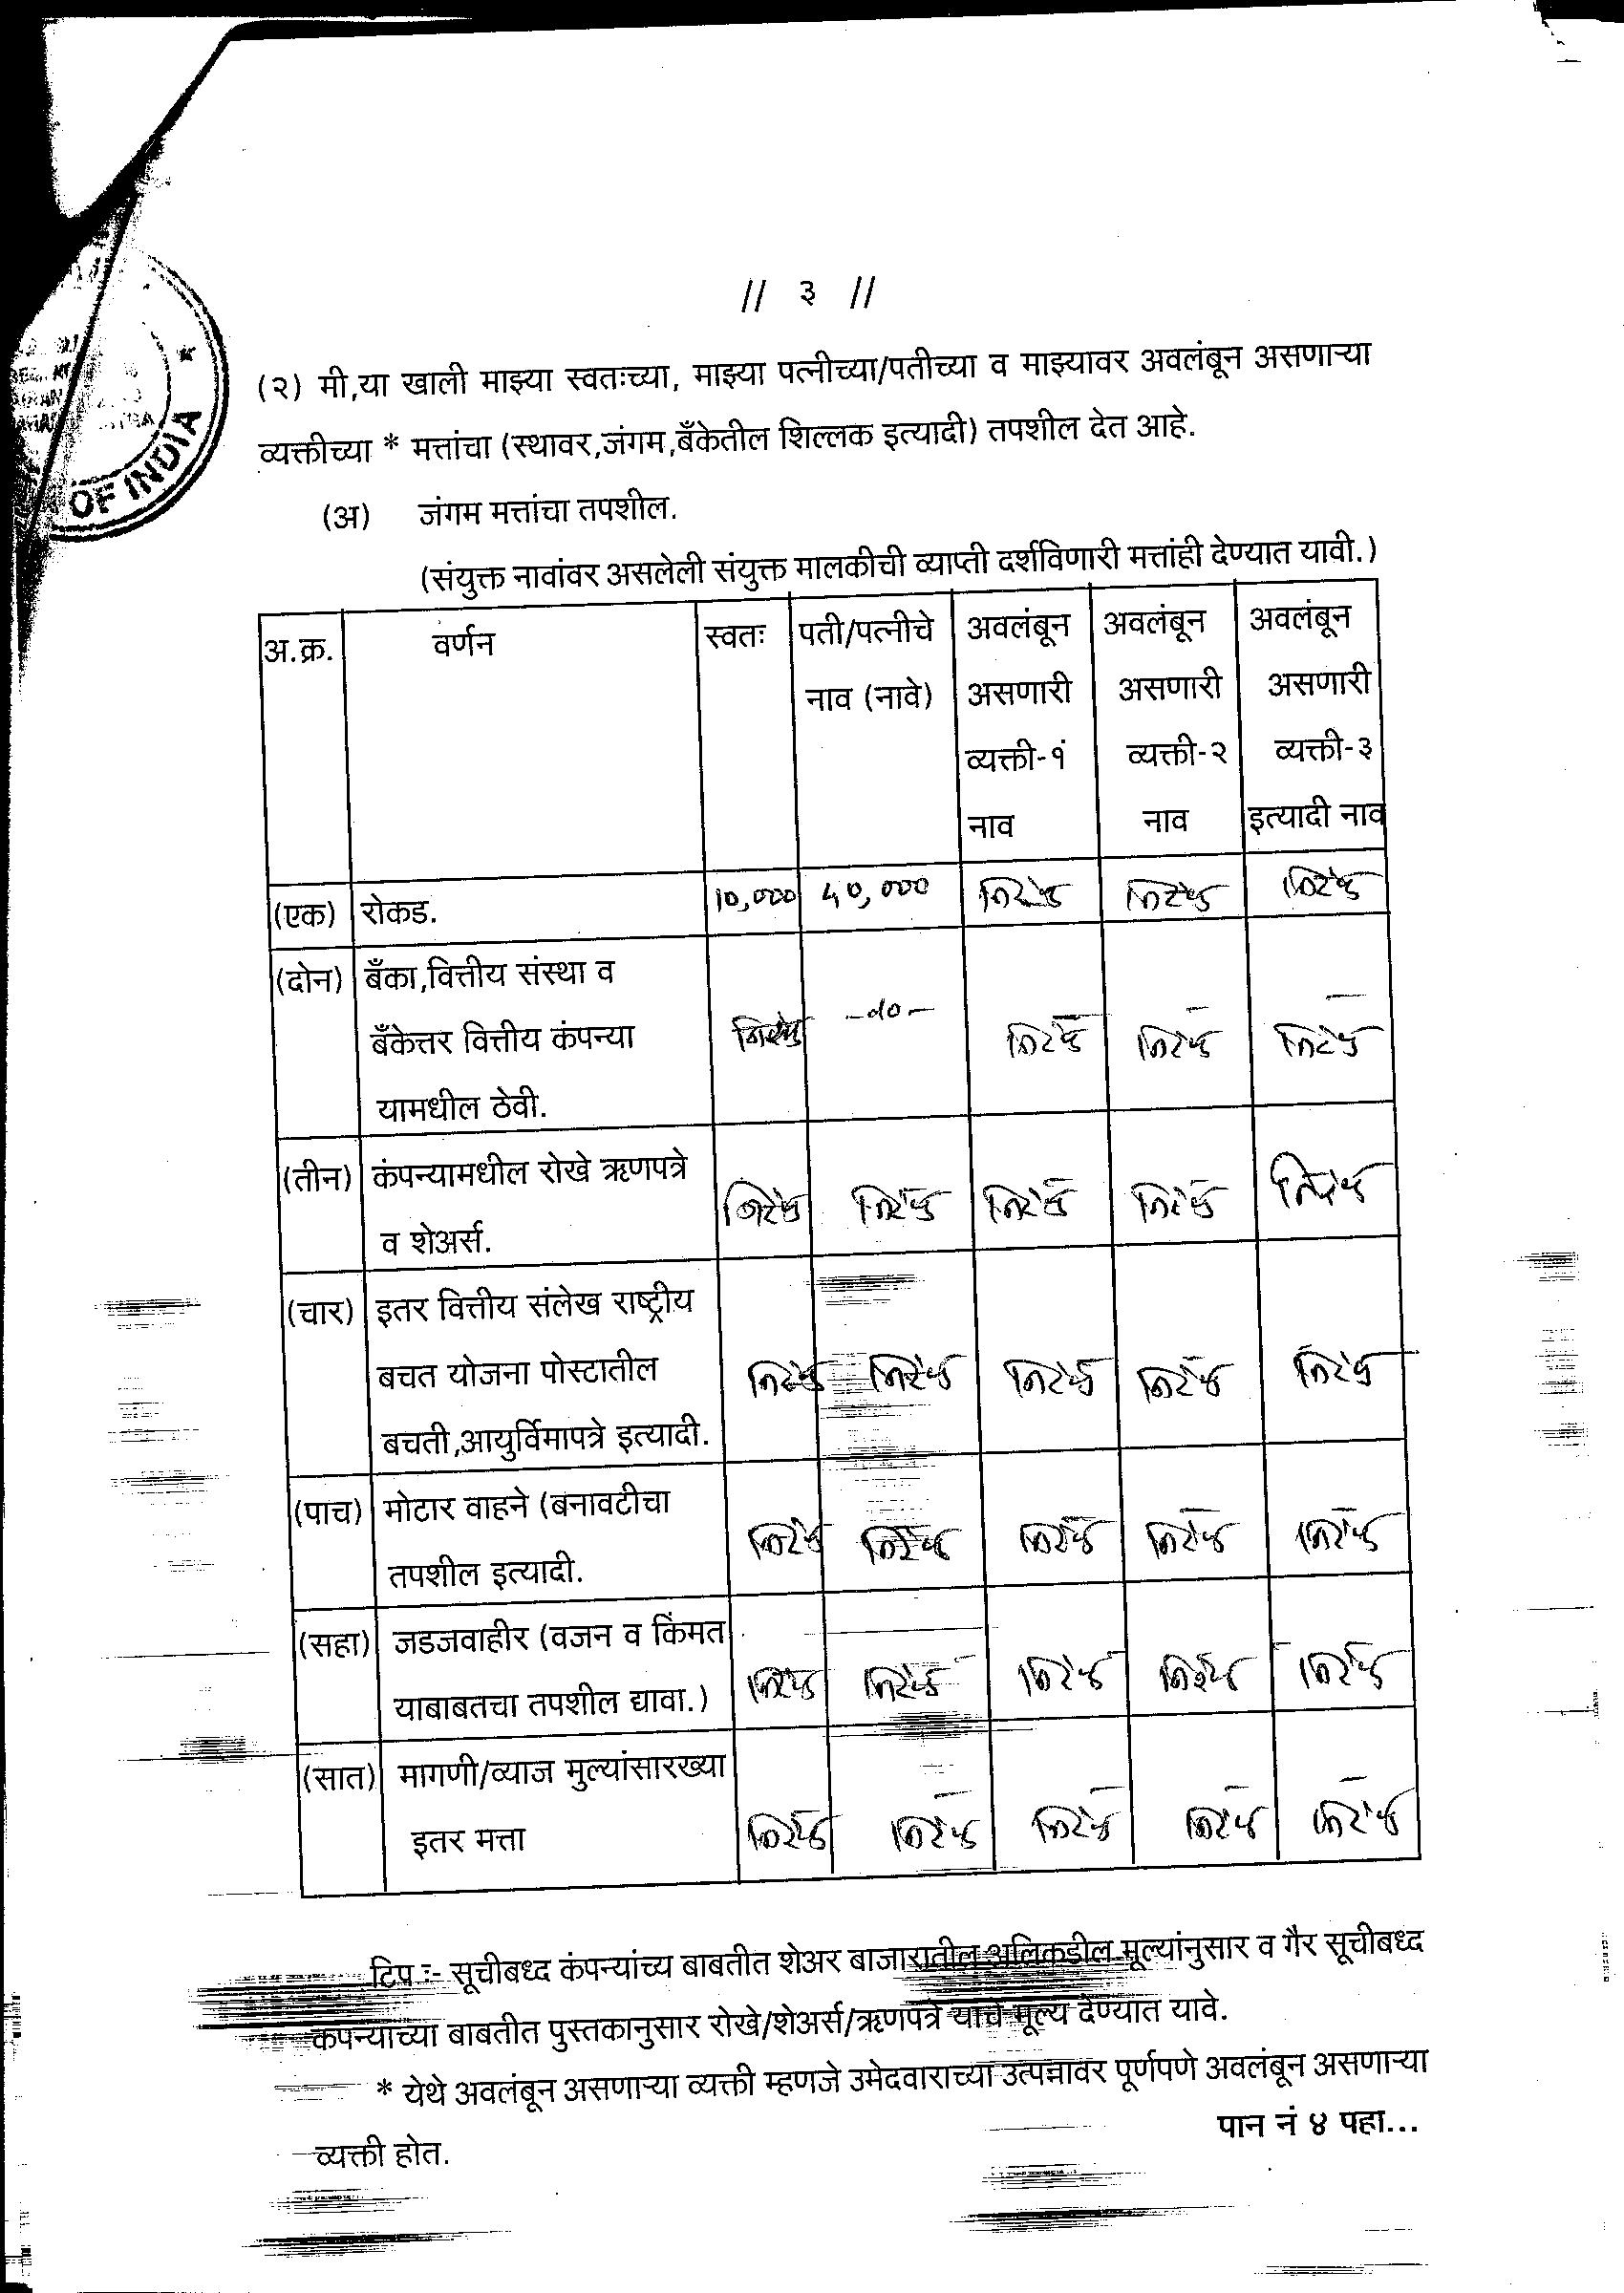 // ३ //
OF INDIA
(२) मी,या खाली माझ्या स्वतःच्या, माझ्या पत्नीच्या/पतीच्या व माझ्यावर अवलंबून असणाऱ्या
व्यक्तीच्या * मत्तांचा (स्थावर,जंगम,बँकेतील शिल्लक इत्यादी) तपशील देत आहे.
(अ) जंगम मत्तांचा तपशील.
(संयुक्त नावांवर असलेली संयुक्त मालकीची व्याप्ती दर्शविणारी मत्तांही देण्यात यावी.)
अ.क्र. वर्णन स्वतः पती/पत्नीचे अवलंबून अवलंबून अवलंबून
नाव (नावे) असणारी असणारी असणारी
व्यक्ती-१ व्यक्ती-२ व्यक्ती-३
नाव नाव इत्यादी नाव
(एक) रोकड. 10,000 40,000 निरंक निरंक निरंक
(दोन) बँका,वित्तीय संस्था व
बँकेत्तर वित्तीय कंपन्या निरंक -do- निरंक निरंक निरंक
यामधील ठेवी.
(तीन) कंपन्यामधील रोखे ऋणपत्रे
व शेअर्स. निरंक निरंक निरंक निरंक निरंक
(चार) इतर वित्तीय संलेख राष्ट्रीय
बचत योजना पोस्टातील निरंक निरंक निरंक निरंक निरंक
बचती,आयुर्विमापत्रे इत्यादी.
(पाच) मोटार वाहने (बनावटीचा
तपशील इत्यादी. निरंक निरंक निरंक निरंक निरंक
(सहा) जडजवाहीर (वजन व किंमत
याबाबतचा तपशील द्यावा.) निरंक निरंक निरंक निरंक निरंक
(सात) मागणी/व्याज मुल्यांसारख्या
इतर मत्ता निरंक निरंक निरंक निरंक निरंक
टिप :- सूचीबध्द कंपन्यांच्य बाबतीत शेअर बाजारातील अलिकडील मूल्यांनुसार व गैर सूचीबध्द
कंपन्यांच्या बाबतीत पुस्तकानुसार रोखे/शेअर्स/ऋणपत्रे यांचे मूल्य देण्यात यावे.
* येथे अवलंबून असणाऱ्या व्यक्ती म्हणजे उमेदवाराच्या उत्पन्नावर पूर्णपणे अवलंबून असणाऱ्या
व्यक्ती होत.
पान नं ४ पहा...